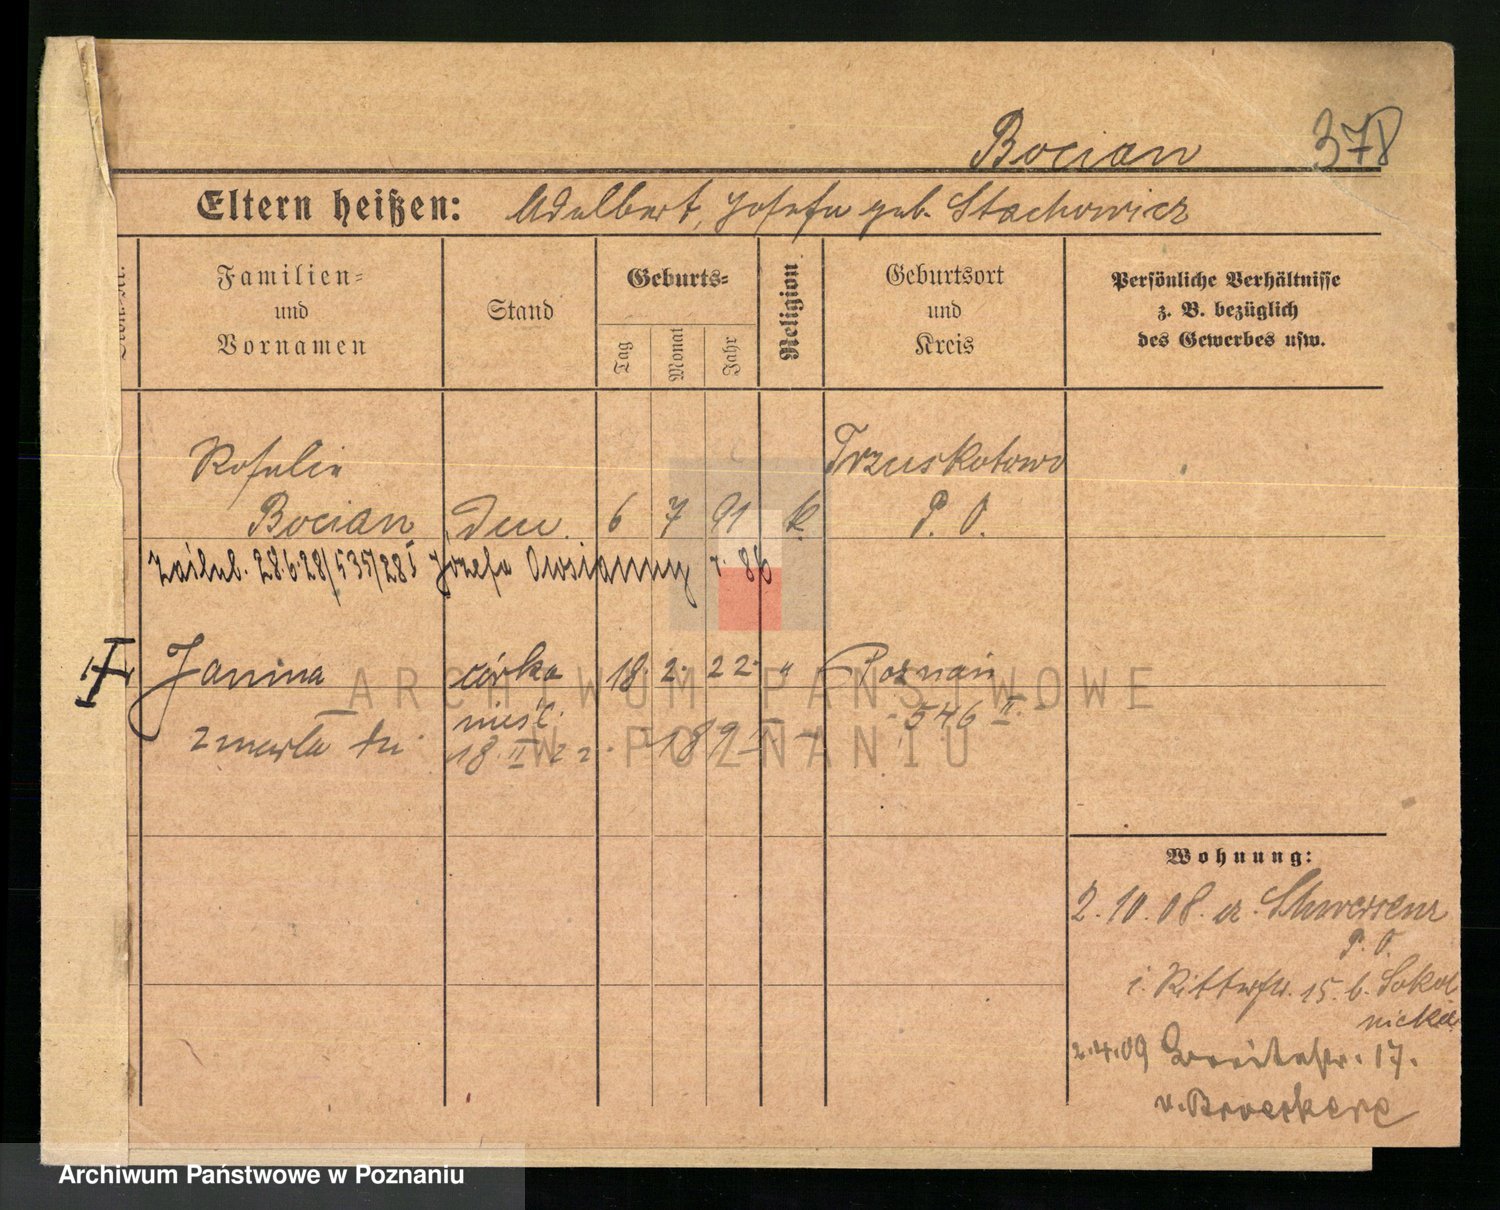 Bocian 378
Eltern heißen: Adalbert, Josefa geb. Stachowicz
Familien- und Vornamen
Stand
Geburts-
Tag
Monat
Jahr
Religion
Geburtsort und Kreis
Persönliche Verhältnisse
z. B. bezüglich
des Gewerbes usw.
Rosalie Trzuskotowo
Bocian 6 7 91 k. P. O.
zaślub. 28.6.28/535/28 Józefa
Janina córka 18. 2. 22. " Poznań
nieśl. 546 II.
zmarła dn. 18 II 22
ARCHIWUM PAŃSTWOWE
W POZNANIU
Wohnung:
2.10.08. a. Schwersenz
P. O.
i. Ritterstr. 15. b. Sokol
nicka
2.4.09 Breitestr. 17.
v. Broekere
Archiwum Państwowe w Poznaniu